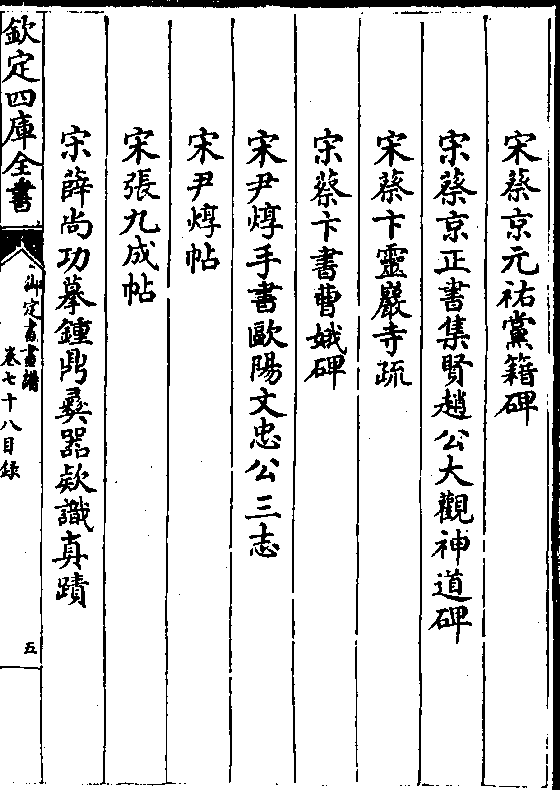 宋蔡京元祐黨籍碑
宋蔡京正書集賢趙公大觀神道碑
宋蔡卞靈巖寺疏
宋蔡卞書曹娥碑
宋尹焞手書歐陽文忠公三志
宋尹焞帖
宋張九成帖
宋薛尚功摹鍾鼎彛器欵識真蹟
欽定四庫全書
御定書畫譜
卷七十八目録
五